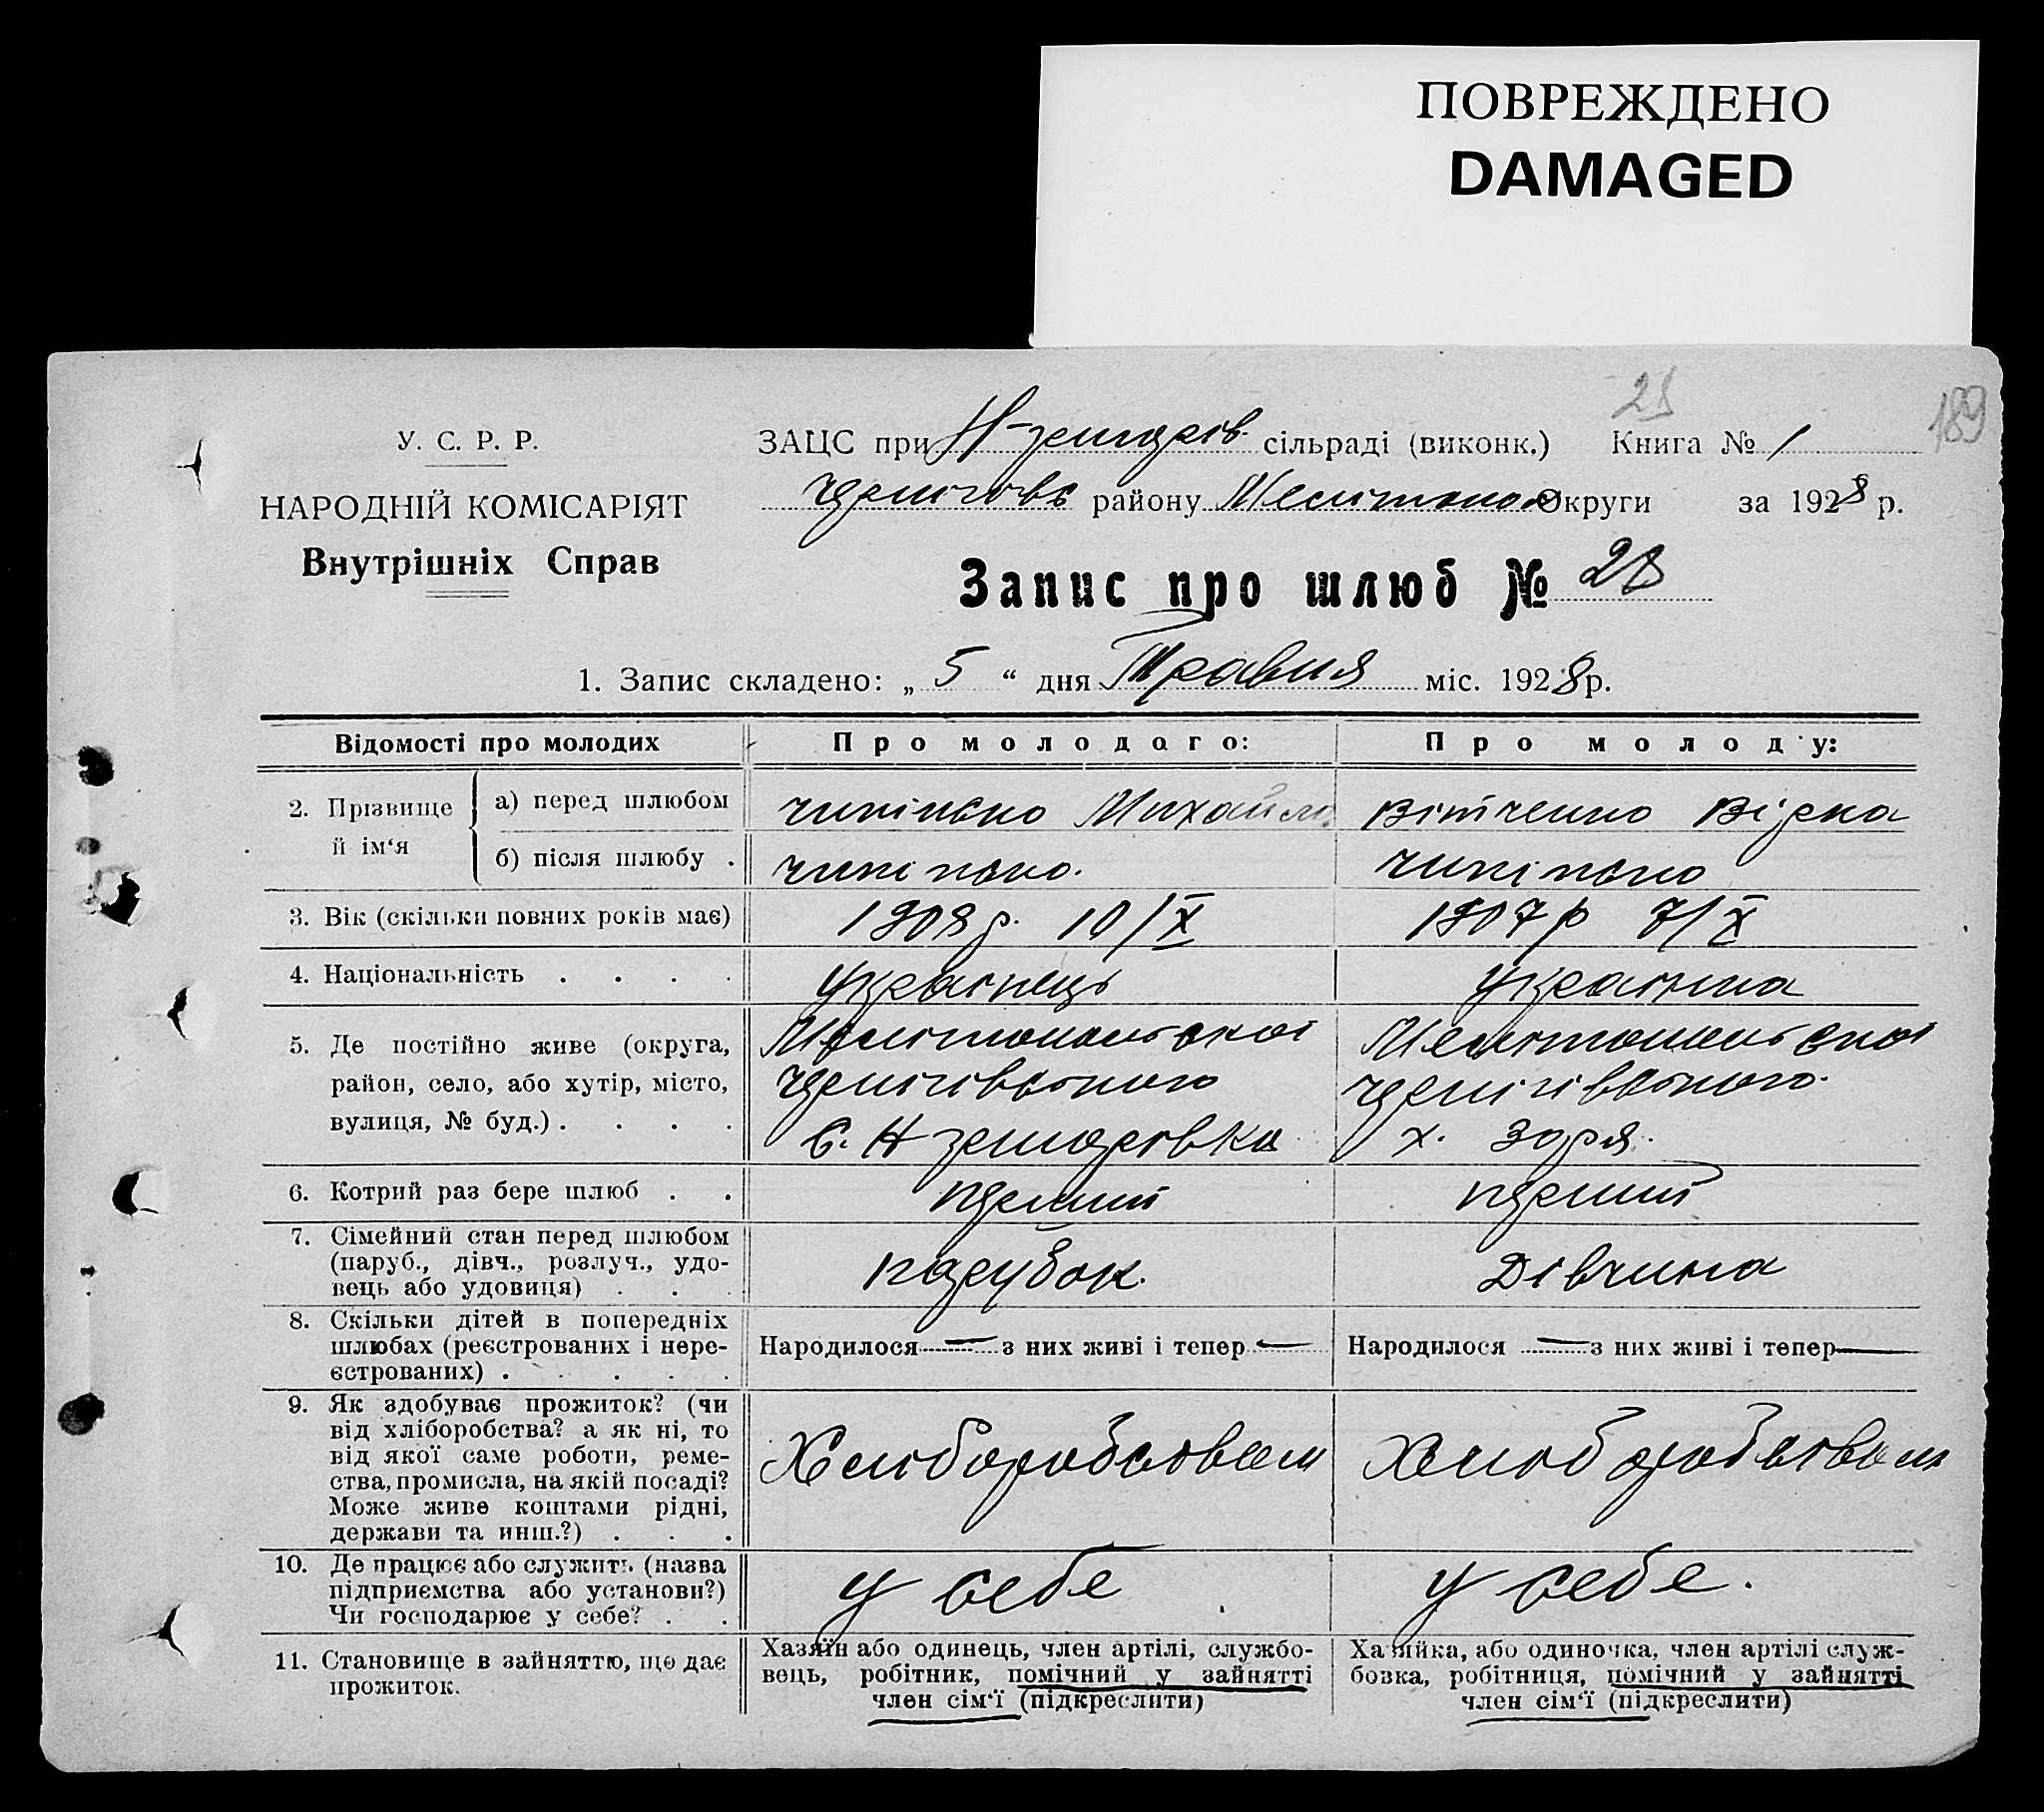 ПОВРЕЖДЕНО
DAMAGED
189
У. С. Р. Р.
НАРОДНІЙ КОМІСАРІЯТ
Внутрішніх Справ
ЗАЦС при сільраді (виконк.) Книга № 1
району Округи за 1928 р.
Запис про шлюб № 28
1. Запис складено: „ 5 “ дня Травня міс. 1928 р.
Відомості про молодих
Про молодого:
Про молоду:
2. Прізвище й ім‘я
а) перед шлюбом
Михайло
Вітченко
б) після шлюбу .
3. Вік (скільки повних років має)
1908 р. 10/X
1907 р 7/X
4. Національність . . . .
Українець
Українка
5. Де постійно живе (округа,
район, село, або хутір, місто,
вулиця, № буд.) . . . .
Мелітопольської
Чернігівського
с. Н
Мелітопольської
Чернігівського
х. Зоря.
6. Котрий раз бере шлюб . .
перший
перший
7. Сімейний стан перед шлюбом
(паруб., дівч., розлуч., удо-
вець або удовиця) . . .
парубок.
Дівчина
8. Скільки дітей в попередніх
шлюбах (реєстрованих і нере-
єстрованих) . . . . .
Народилося — з них живі і тепер —
Народилося — з них живі і тепер —
9. Як здобуває прожиток? (чи
від хліборобства? а як ні, то
від якої саме роботи, реме-
ства, промисла, на якій посаді?
Може живе коштами рідні,
держави та инш.?) . . .
Хліборобством
Хліборобством
10. Де працює або служить (назва
підприємства або установи?)
Чи господарює у себе? . .
у себе
у себе.
11. Становище в зайняттю, що дає
прожиток.
Хазяїн або одинець, член артілі, службо-
вець, робітник, помічний у зайнятті
член сім‘ї (підкреслити)
Хазяйка, або одиночка, член артілі служ-
бовка, робітниця, помічний у зайнятті
член сім‘ї (підкреслити)